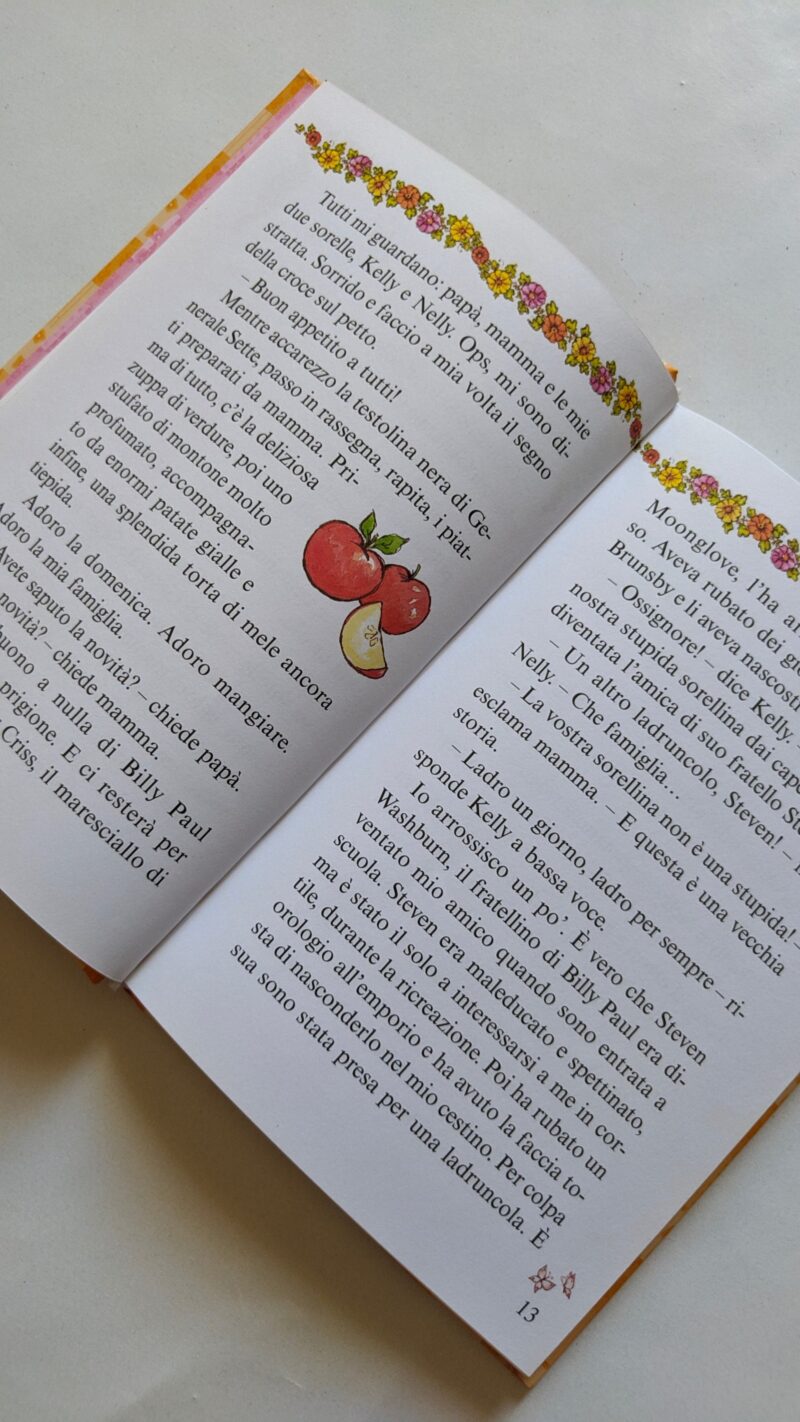 Tutti mi guardano: papà, mamma e le mie
due sorelle, Kelly e Nelly. Ops, mi sono di-
stratta. Sorrido e faccio a mia volta il segno
della croce sul petto.
– Buon appetito a tutti!
Mentre accarezzo la testolina nera di Ge-
nerale Sette, passo in rassegna, rapita, i piat-
ti preparati da mamma. Pri-
ma di tutto, c'è la deliziosa
zuppa di verdure, poi uno
stufato di montone molto
profumato, accompagna-
to da enormi patate gialle e
infine, una splendida torta di mele ancora
tiepida.
Adoro la domenica. Adoro mangiare.
Adoro la mia famiglia.
Avete saputo la novità? – chiede papà.
novità? – chiede mamma.
buono a nulla di Billy Paul
prigione. E ci resterà per
Criss, il maresciallo di
Moonglove, l'ha
so. Aveva rubato dei
Brunsby e li aveva nascosti
– Ossignore! – dice Kelly. –
nostra stupida sorellina dai
diventata l'amica di suo fratello
– Un altro ladruncolo, Steven! –
Nelly. – Che famiglia...
– La vostra sorellina non è una stupida! –
esclama mamma. – E questa è una vecchia
storia.
– Ladro un giorno, ladro per sempre – ri-
sponde Kelly a bassa voce.
Io arrossisco un po'. È vero che Steven
Washburn, il fratellino di Billy Paul era di-
ventato mio amico quando sono entrata a
scuola. Steven era maleducato e spettinato,
ma è stato il solo a interessarsi a me in cor-
tile, durante la ricreazione. Poi ha rubato un
orologio all'emporio e ha avuto la faccia to-
sta di nasconderlo nel mio cestino. Per colpa
sua sono stata presa per una ladruncola. È
13